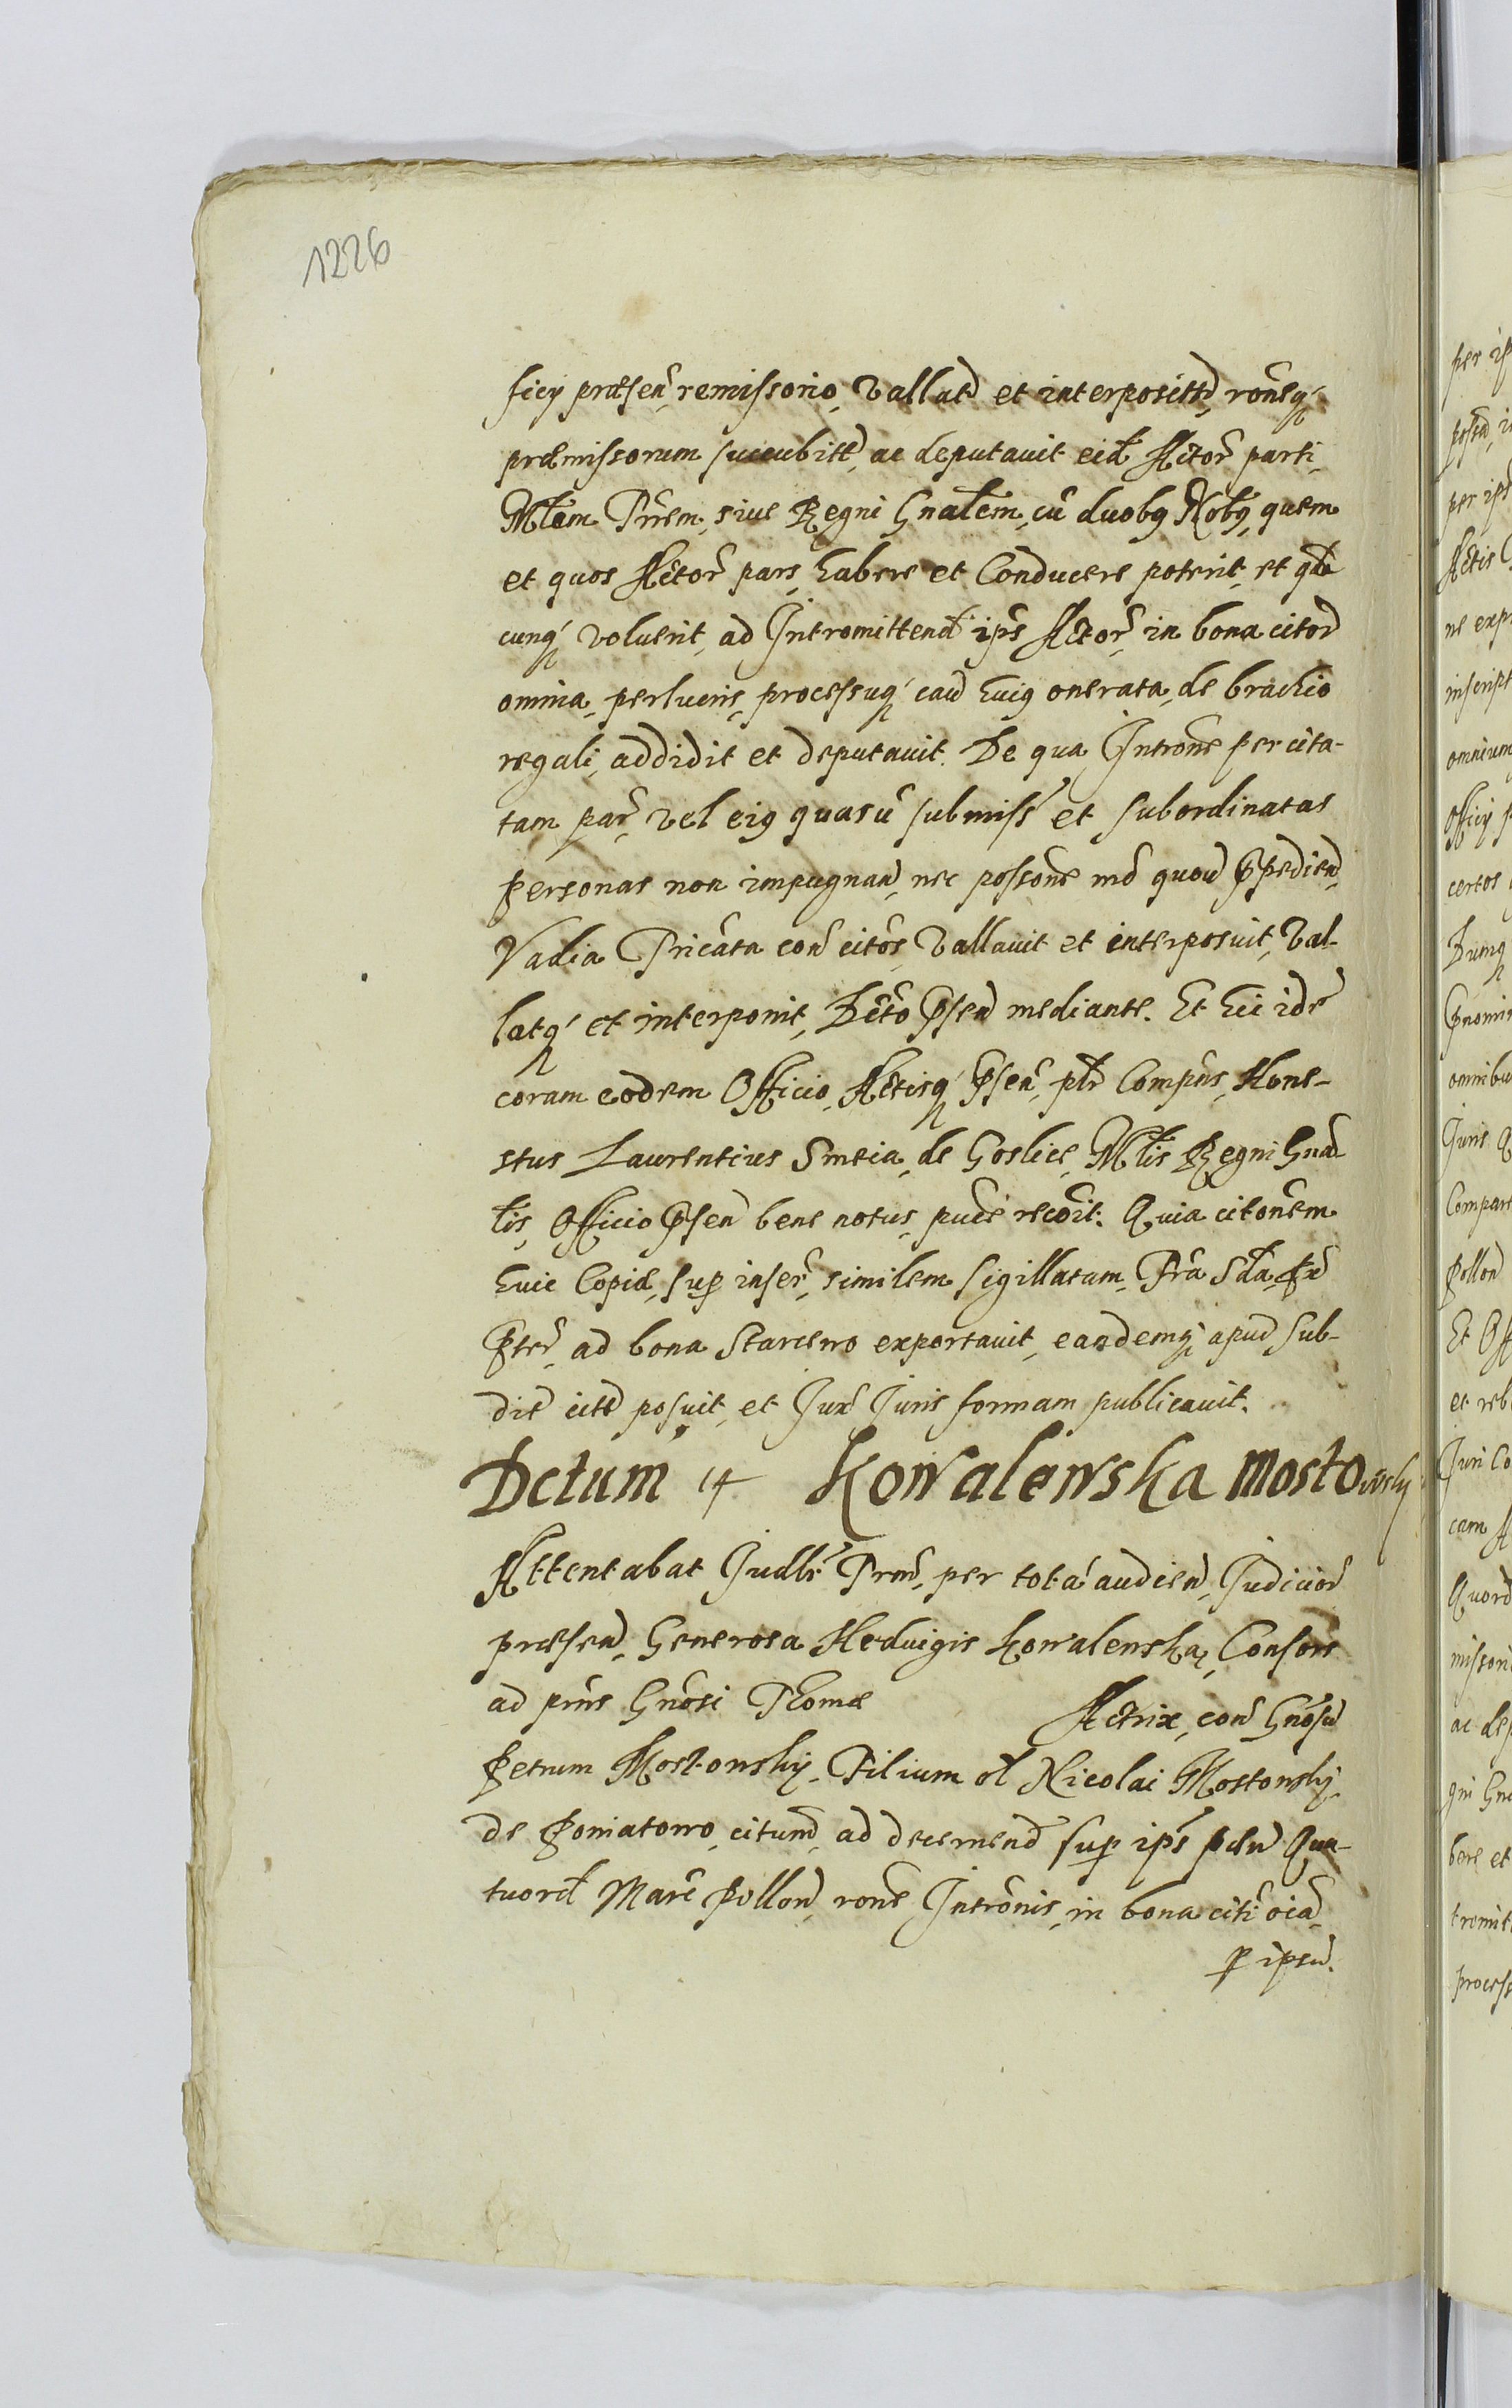 1226
ficij præsen remissorio, vallat et interposit, roneq
præmissorum succubitt, ac deputavit eid Actor parti,
Mlem Prem, sive Regni Gnalem, cu duobq Nobq, quem
et quos Actor pars, habere et Conducere poterit, et qdo
cunq voluerit, ad Intromittend ips Actor, in bona citor
omnia, perlucris, processuq caus huiq onerata, de brachio
regali, addidit et deputavit. De qua Introne per cita-
tam par, vel eiq quasu submiss et subordinatas
personas non impugnan, nec possone mo quovi præpedien,
Vadia Pricata con citos, vallavit et interposuit, val-
latq et interponit, Dcto Psen mediante. Et hic ide
coram eodem Officio, Actisq Psen, plr Compns, Hone-
stus Laurentius Smeia, de Goslice, Mlis Regni Gna-
lis, Officio Psen bene notus, puce recoit. Quia citonem
huic Copiæ, sup inser, similem sigillatam, Fra Sda
Pter, ad bona Starcewo exportavit, eandemq apud sub-
dit citt posuit, et Jux Juris formam publicavit.
Dctum 14 Kowalewska Mostowsky
Attentabat Judlr Trm, per tota audien, Judicior
præsen, Generosa Hedvigis Kowalewska, Consors
ad pns Gnosi Thomæ Actrix, con Gnosu
Petrum Mostowsky, Filium ol Nicolai Mostowsky,
de Poniatowo, citum, ad decernend sup ips pæn Qua-
tuord Marc Pollon, rone Intronis, in bona citi oia,
p ipsu.